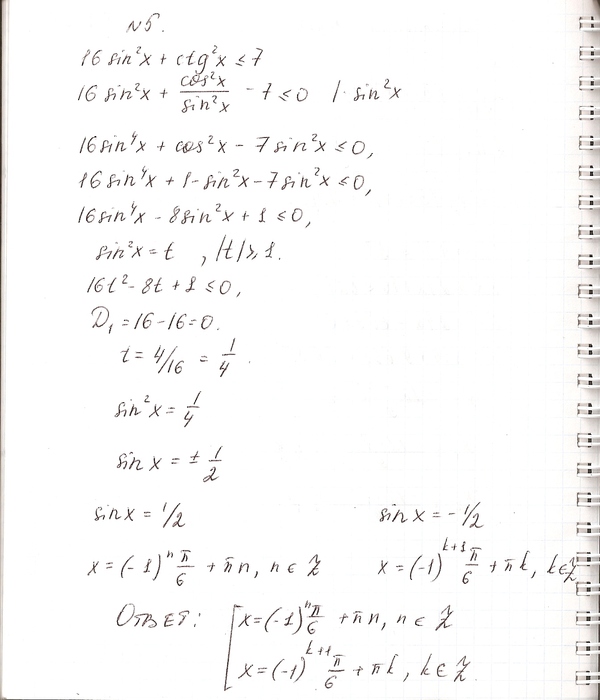 N5.
16 sin²x + ctg²x ≤ 7
16 sin²x + cos²x/sin²x - 7 ≤ 0 /· sin²x
16 sin⁴x + cos²x - 7 sin²x ≤ 0,
16 sin⁴x + 1 - sin²x - 7 sin²x ≤ 0,
16 sin⁴x - 8 sin²x + 1 ≤ 0,
sin²x = t , |t| ≥ 1.
16t² - 8t + 1 ≤ 0,
D₁ = 16 - 16 = 0.
t = 4/16 = 1/4.
sin²x = 1/4
sin x = ± 1/2
sin x = 1/2 sin x = - 1/2
x = (-1)ⁿ π/6 + πn, n ∈ Z x = (-1)ᵏ⁺¹ π/6 + πk, k ∈ Z
Ответ: [ x = (-1)ⁿ π/6 + πn, n ∈ Z
x = (-1)ᵏ⁺¹ π/6 + πk, k ∈ Z.